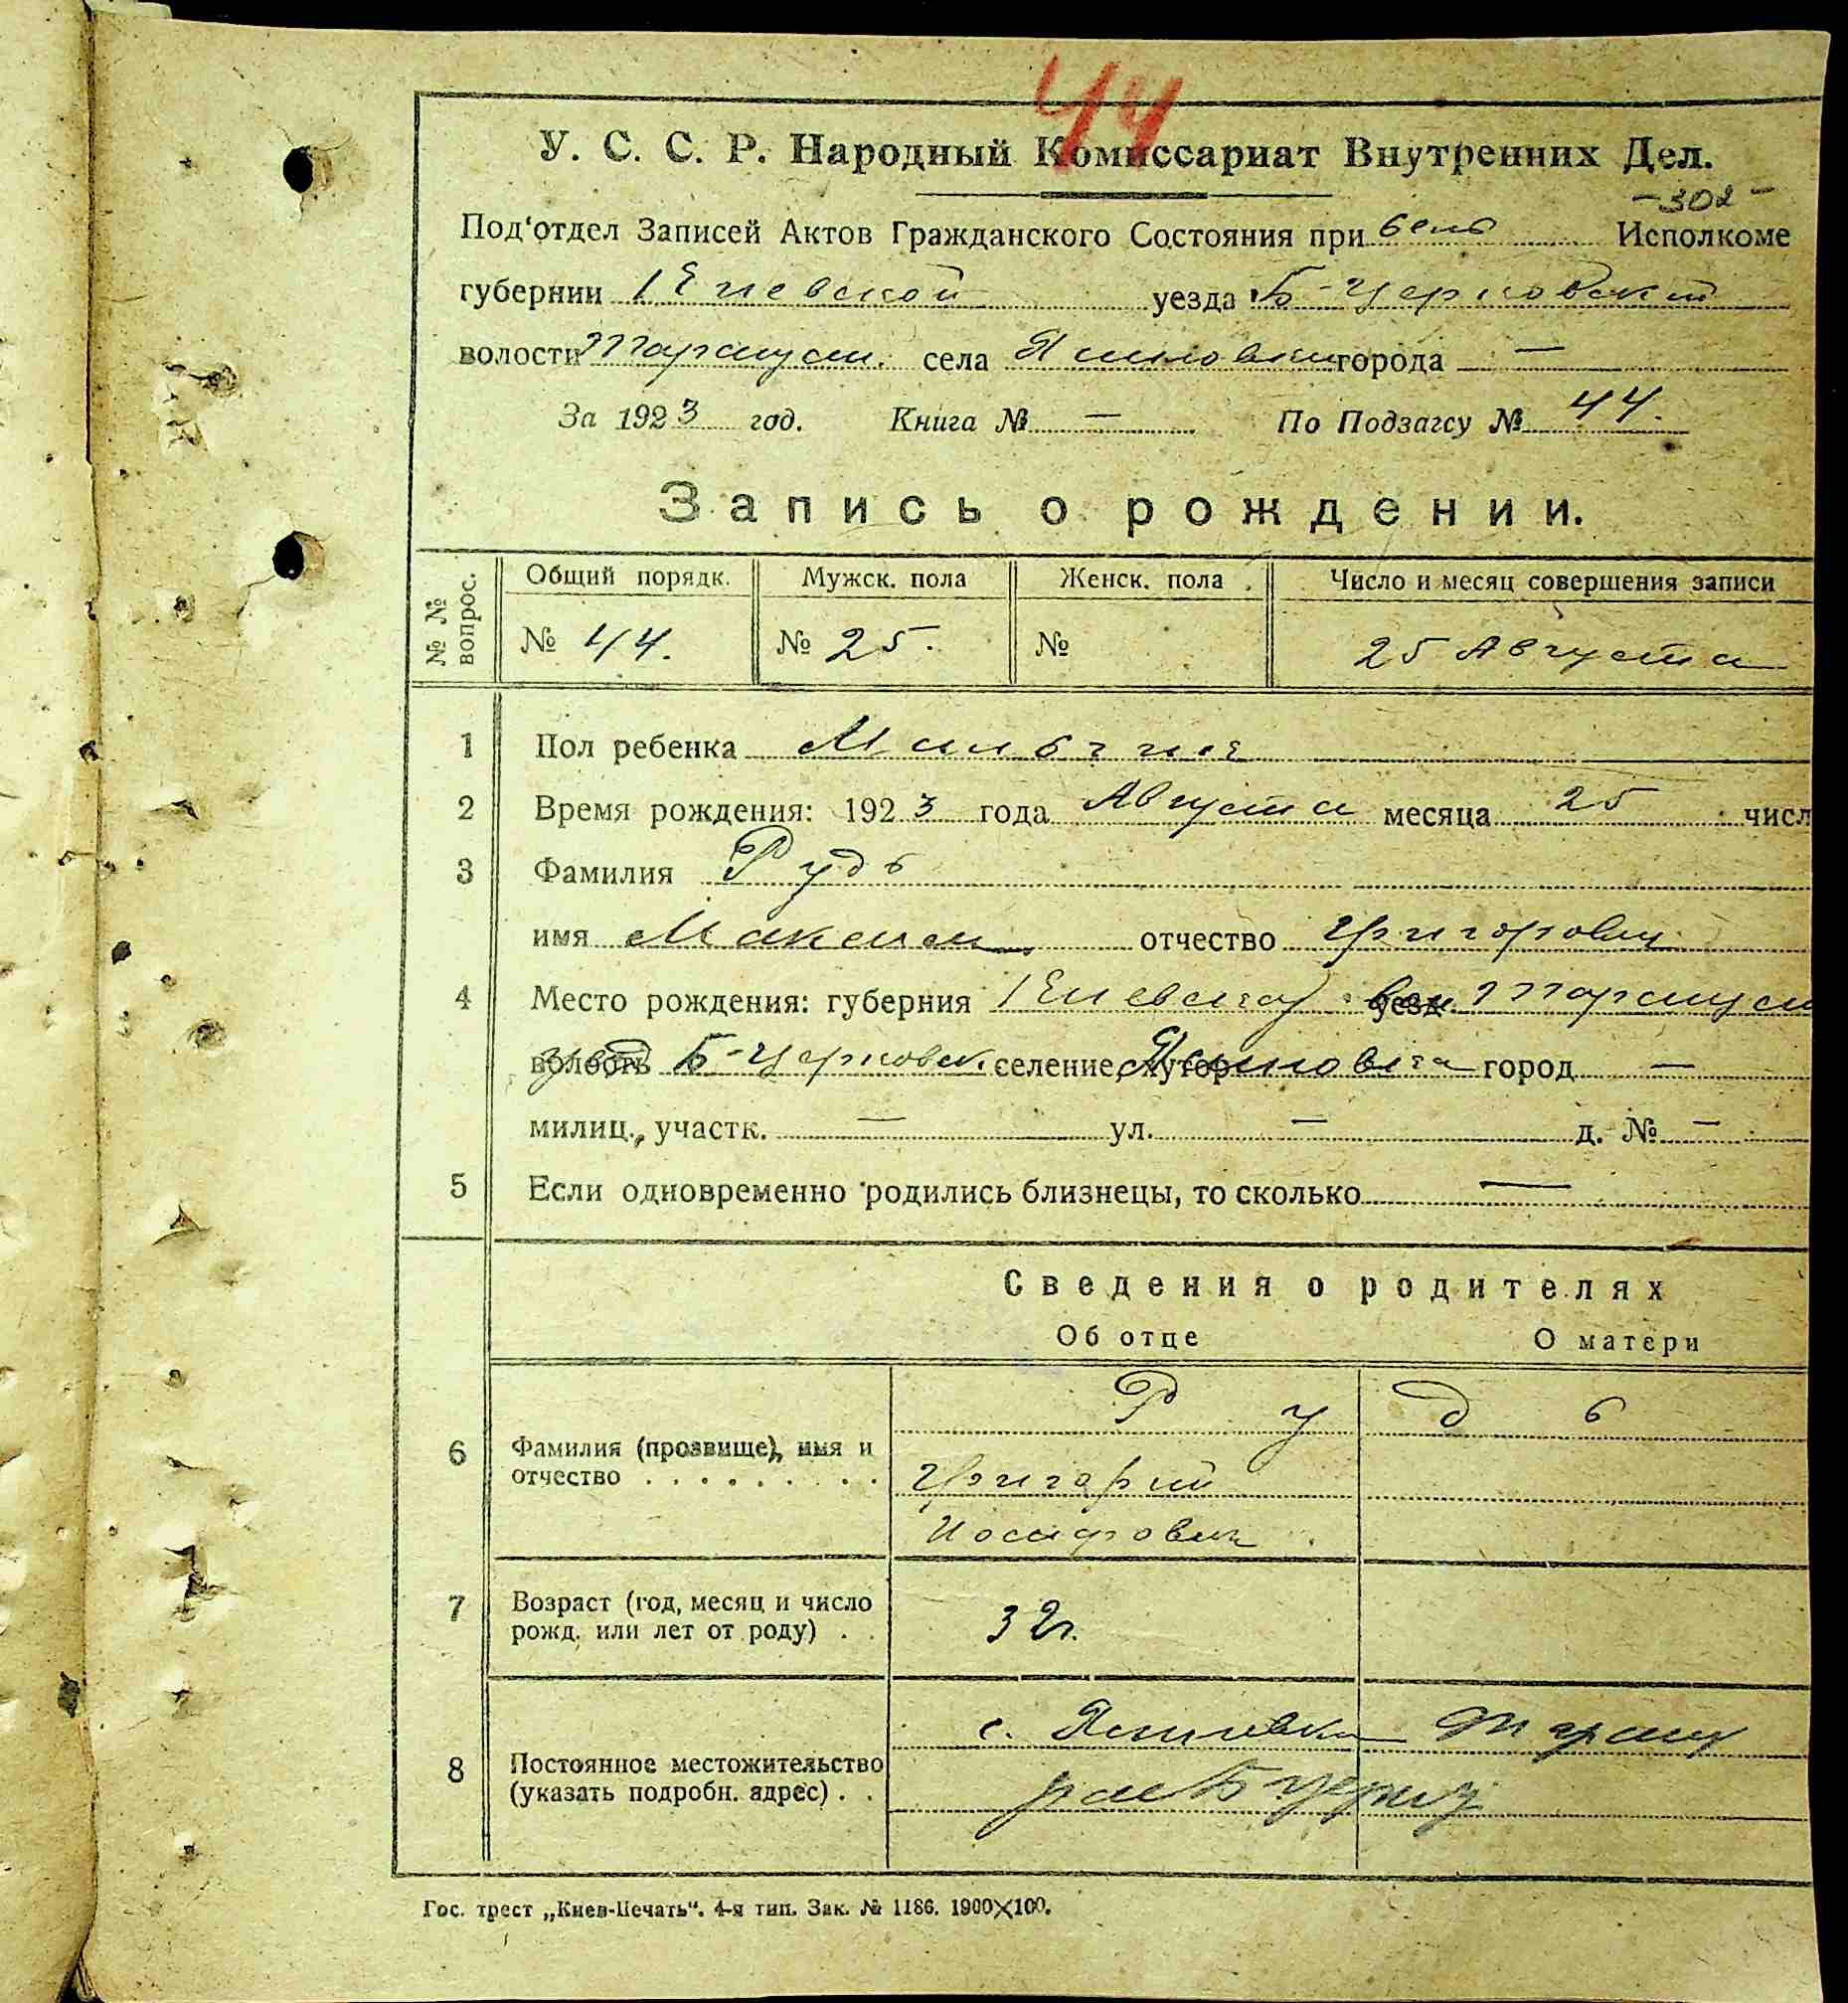 44
У. С. С. Р. Народный Комиссариат Внутренних Дел.
-302-
Под'отдел Записей Актов Гражданского Состояния при Исполкоме
губернии Киевской уезда Б-Церковский
волости Таращан. села города —
За 1923 год. Книга № — По Подзагсу № 44.
Запись о рождении.
№ № вопрос. Общий порядк. Мужск. пола Женск. пола Число и месяц совершения записи
№ 44. № 25. № 25 Августа
1 Пол ребенка Мальчик
2 Время рождения: 1923 года Августа месяца 25 числ
3 Фамилия Рудь
имя Максим отчество Григорович
4 Место рождения: губерния Киевская уезд вол. Таращан
волость уезд Б-Церковск. селение, хутор город —
милиц., участк. — ул. — д. № —
5 Если одновременно родились близнецы, то сколько —
Сведения о родителях
Об отце О матери
Рудь
6 Фамилия (прозвище), имя и
отчество . . . . . . . . .
Григорий
Иосифович
7 Возраст (год, месяц и число
рожд. или лет от роду) . .
32 г.
8 Постоянное местожительство
(указать подробн. адрес) . .
с.
Гос. трест „Киев-Печать“. 4-я тип. Зак. № 1186. 1900×100.